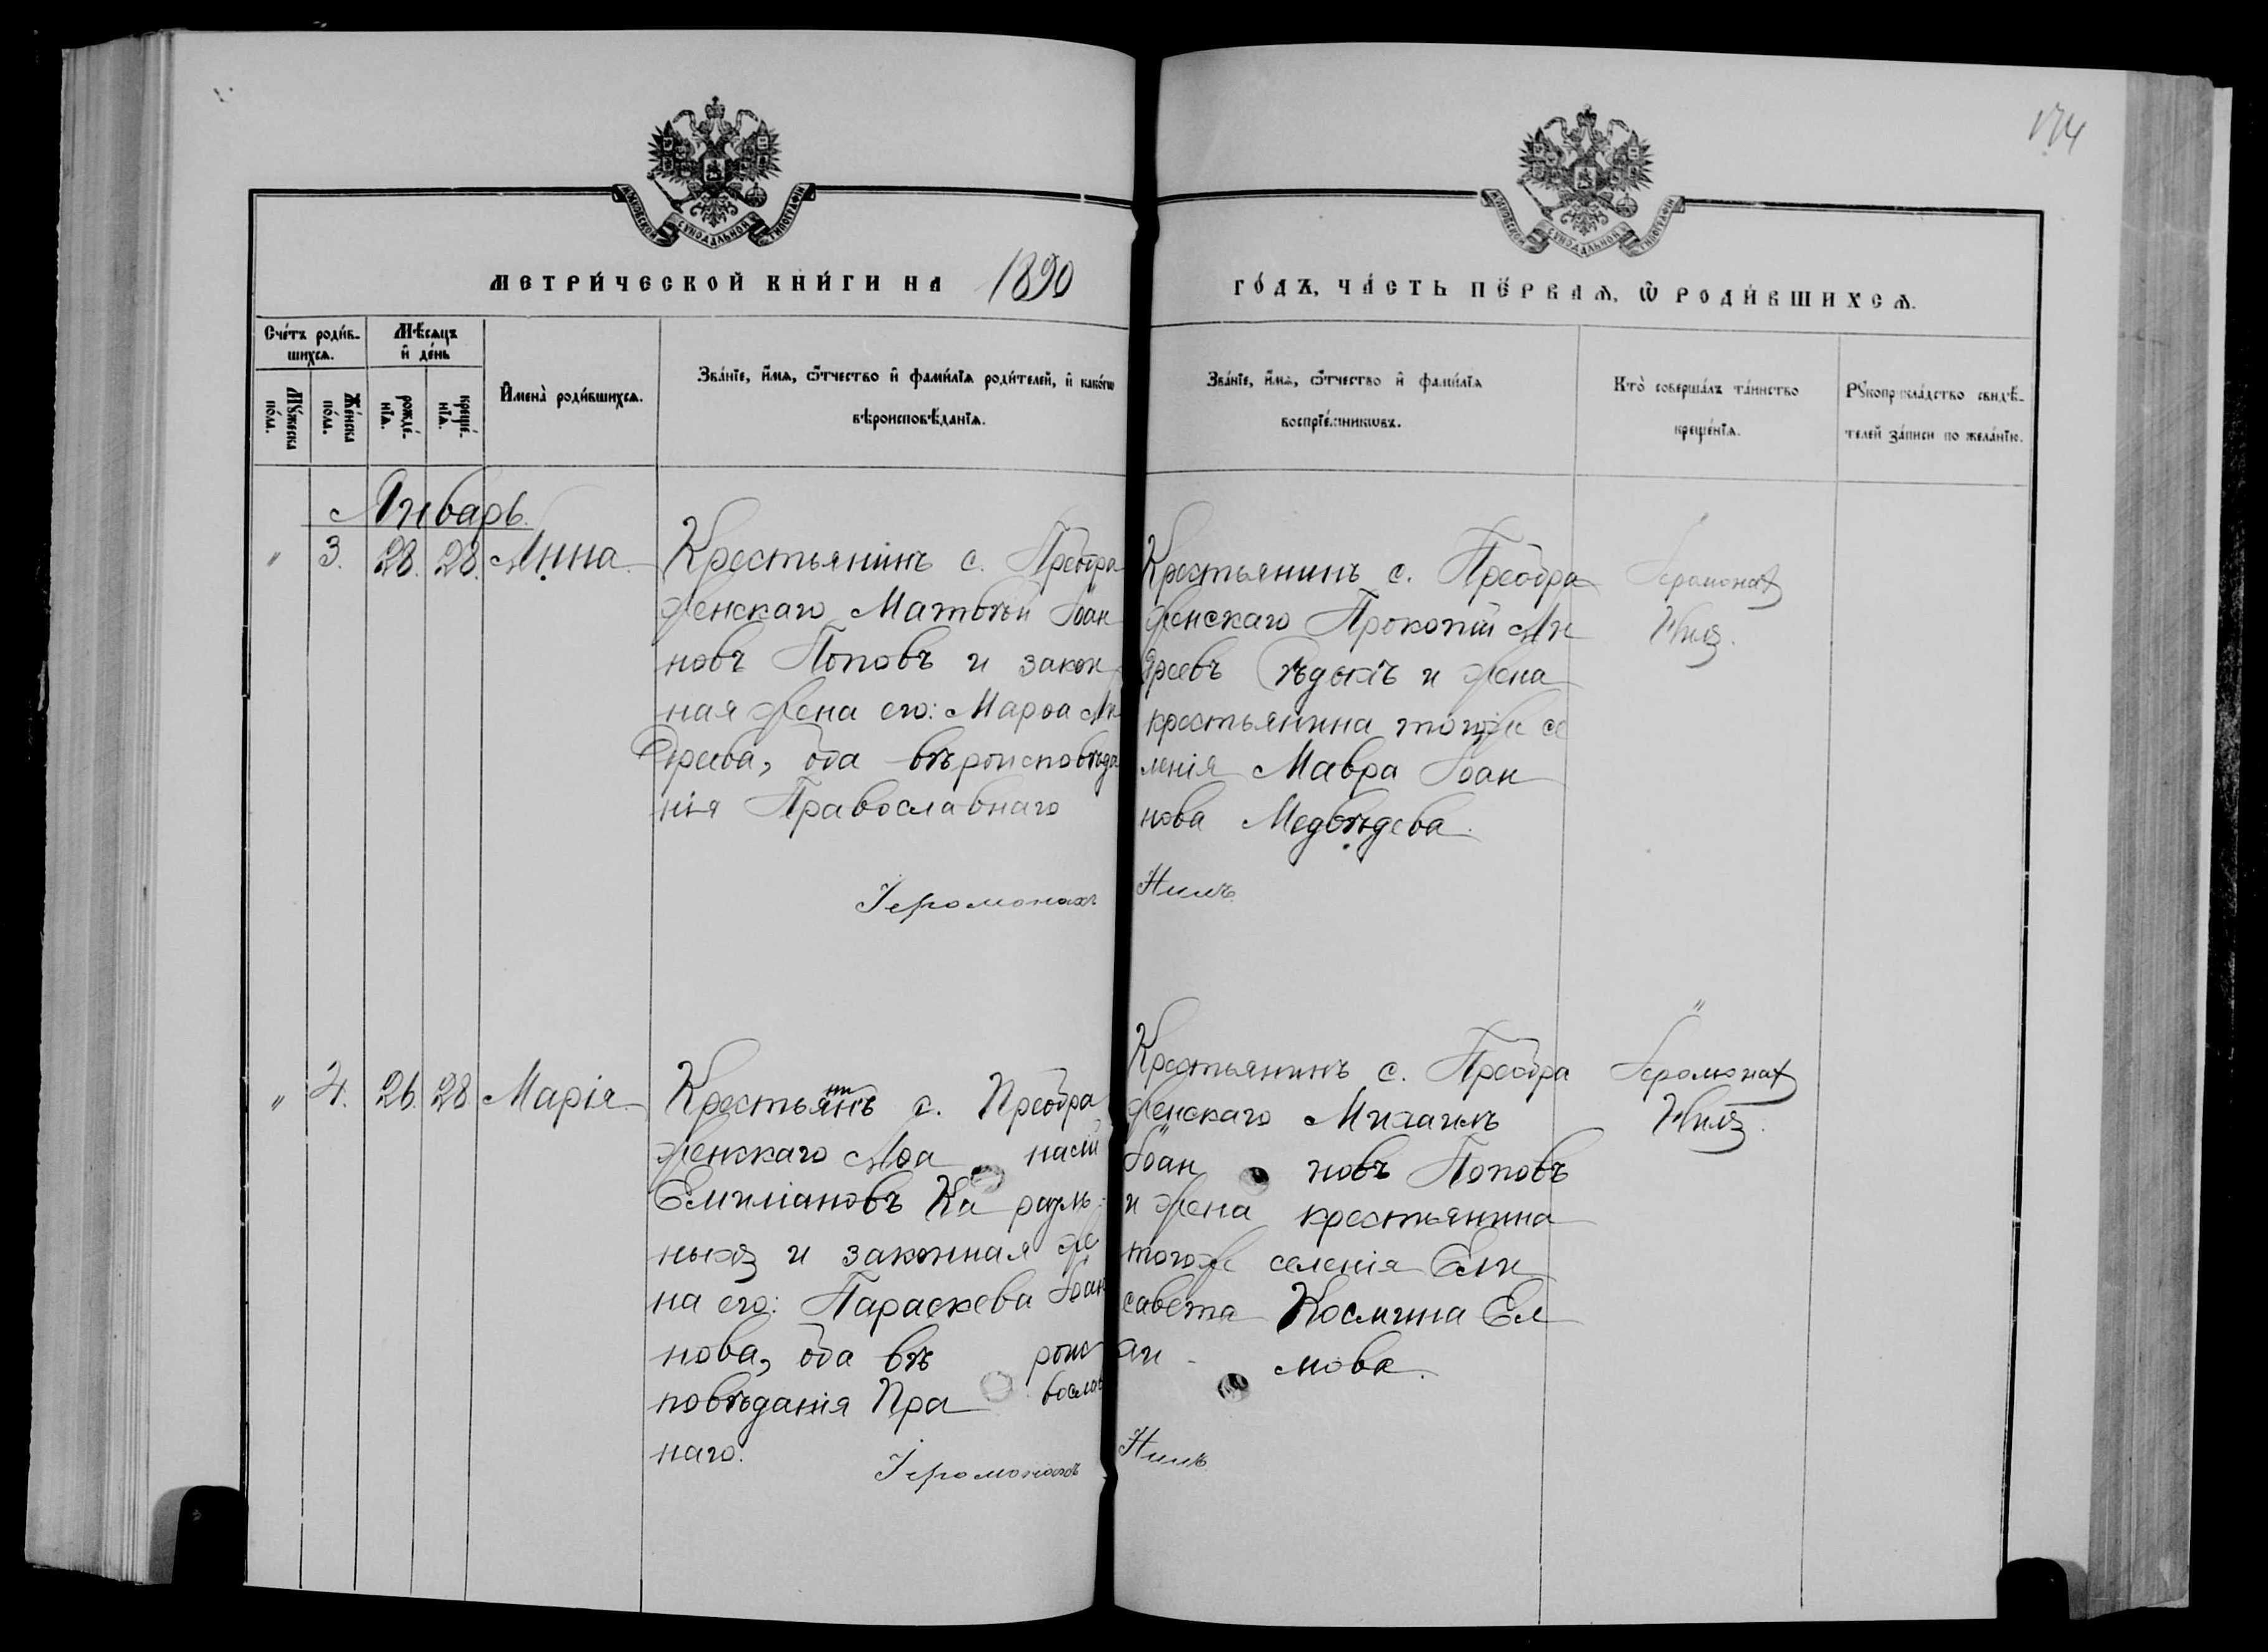 174
МОСКОВСКОЙ СѴНОДАЛЬНОЙ ТИПОГРАФІИ
МОСКОВСКОЙ СѴНОДАЛЬНОЙ ТИПОГРАФІИ
МЕТРИ́ЧЕСКОЙ КНИ́ГИ НА 1890
ГО́ДЪ, ЧА́СТЬ ПЕ́РВАѦ, Ѽ РОДИ́ВШИХСѦ.
Сче́тъ роди́в-
шихсѧ.
Мꙋ́жеска
по́ла.
Же́нска
по́ла.
Мѣ́сѧцъ
и҆ де́нь
рожде́-
нїѧ.
креще́-
нїѧ.
И҆мена̀ роди́вшихсѧ.
Зва́нїе, и҆́мѧ, ѻ҆́тчество и҆ фами́лїѧ роди́телей, и҆ како́гѡ
вѣроисповѣ́данїѧ.
Зва́нїе, и҆́мѧ, ѻ҆́тчество и҆ фами́лїѧ
воспрїе́мникѡвъ.
Кто̀ соверша́лъ та́инство
креще́нїѧ.
Рꙋкоприкла́дство свидѣ́-
телей за́писи по жела́нїю.
Январь.
" 3. 28. 28. Анна.
Крестьянинъ с. Преобра
женскаго Матвѣй Іоан
новъ Поповъ и закон
ная жена его: Марѳа Ан
дреева, оба вѣроисповѣда
нія Православнаго
Іеромонахъ Нилъ
Крестьянинъ с. Преобра
женскаго Прокопій Ан
дреевъ и жена
крестьянина тогоже се
ленія Мавра Іоан
нова Медвѣдева.
Іеромонахъ
Нилъ.
" 4. 26. 28. Марія.
Крестьянинъ с. Преобра
женскаго Аѳа насій
Емиліановъ Ка рауль-
ныхъ и законная же
на его: Параскева Іоан
нова, оба вѣ роис
повѣданія Пра вослав
наго.
Іеромонахъ Нилъ
Крестьянинъ с. Преобра
женскаго Михаилъ
Іоан новъ Поповъ
и жена крестьянина
тогоже селенія Ели
савета Космина Ел
ан - мова.
Іеромонахъ
Нилъ.